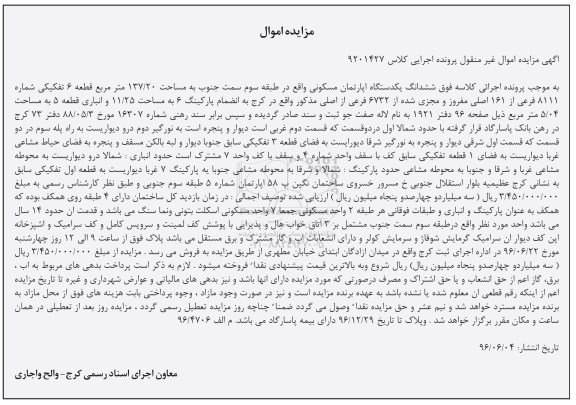 مزایده اموال
آگهی مزایده اموال غیر منقول پرونده اجرایی کلاس ۹۲۰۱۴۲۷
به موجب پرونده اجرائی کلاسه فوق ششدانگ یکدستگاه اپارتمان مسکونی واقع در طبقه سوم سمت جنوب به مساحت ۱۳۷/۲۰ متر مربع قطعه ۶ تفکیکی شماره
۸۱۱۱ فرعی از ۱۶۱ اصلی مفروز و مجزی شده از ۶۷۳۲ از اصلی مذکور واقع در کرج به انضمام پارکینگ ۶ به مساحت ۱۱/۲۵ و انباری قطعه ۵ به مساحت
۵/۰۴ متر مربع ذیل صفحه ۹۶ دفتر ۱۹۲۱ به نام لاله صفت جو ثبت و سند صادر گردیده و سپس برابر سند رهنی شماره ۱۶۳۰۷ مورخ ۸۸/۰۵/۳ دفتر ۷۳ کرج
در رهن بانک پاسارگاد قرار گرفته با حدود شمالا اول دردوقسمت که قسمت دوم غربی است دیوار و پنجره است به نورگیر دوم درو دیواریست به راه پله سوم در دو
قسمت که قسمت اول شرقی دیوار و پنجره به نورگیر شرقا دیواریست به فضای قطعه ۳ تفکیکی سابق جنوبا دیوار و لبه بالکن مسقف و پنجره به فضای حیاط مشاعی
غربا دیواریست به فضای ۱ قطعه تفکیکی سابق کف با سقف واحد شماره ۴ و سقف با کف واحد ۷ مشترک است حدود انباری : شمالا درو دیواریست به محوطه
مشاعی غربا و شرقا و جنوبا به محوطه مشاعی حدود پارکینگ : شمالا و شرقا به محوطه مشاعی جنوبا به پارکینگ ۷ غربا دیواریست به قطعه اول تفکیکی سابق
به نشانی کرج عظیمیه بلوار استقلال جنوبی خ مسرور خسروی ساختمان نگین پ ۵۸ اپارتمان شماره ۵ طبقه سوم جنوبی و طبق نظر کارشناس رسمی به مبلغ
۳/۴۵۰/۰۰۰/۰۰۰ ریال ( سه میلیاردو چهارصدو پنجاه میلیون ریال ) ارزیابی شده توصیف اجمالی : در زمان بازدید کل ساختمان دارای ۴ طبقه روی همکف بوده که
همکف به عنوان پارکینگ و انباری و طبقات فوقانی هر طبقه ۲ واحد مسکونی جمعا ۷ واحد مسکونی اسکلت بتونی ونما سنگ می باشد و قدمت ان حدود ۱۴ سال
می باشد واحد مورد نظر واقع درطبقه سوم سمت جنوب مشتمل بر ۳ اتاق خواب هال و پذیرایی با پوشش کف لمینت و سرویس کامل و کف سرامیک و اشپزخانه
اپن کف دیوار ان سرامیک گرمایش شوفاژ و سرمایش کولر و دارای انشعابات اب و گاز مشترک و برق مستقل می باشد پلاک فوق از ساعت ۹ الی ۱۲ روز چهارشنبه
مورخ ۹۶/۰۶/۲۲ در اداره اجرای ثبت کرج واقع در میدان ازادگان ابتدای خیابان مطهری از طریق مزایده به فروش می رسد . مزایده از مبلغ ۳/۴۵۰/۰۰۰/۰۰۰ ریال
( سه میلیاردو چهارصدو پنجاه میلیون ریال) ریال شروع وبه بالاترین قیمت پیشنهادی نقدا" فروخته میشود . لازم به ذکر است پرداخت بدهی های مربوط به اب ،
برق، گاز اعم از حق انشعاب و یا حق اشتراک و مصرف درصورتی که مورد مزایده دارای انها باشد و نیز بدهی های مالیاتی و عوارض شهرداری و غیره تا تاریخ مزایده
اعم از اینکه رقم قطعی ان معلوم شده یا نشده باشد به عهده برنده مزایده است و نیز در صورت وجود مازاد ، وجوه پرداختی بابت هزینه های فوق از محل مازاد به
برنده مزایده مسترد خواهد شد و نیم عشر و حق مزایده نقدا" وصول می گردد ضمنا" چناچه روز مزایده تعطیل رسمی گردد ، مزایده روز بعد از تعطیلی در همان
ساعت و مکان مقرر برگزار خواهد شد . وپلاک تا تاریخ ۹۶/۱۲/۲۹ دارای بیمه پاسارگاد می باشد. م الف ۹۶/۴۷۰۶
تاریخ انتشار: ۹۶/۰۶/۰۴
معاون اجرای اسناد رسمی کرج - والح واجاری